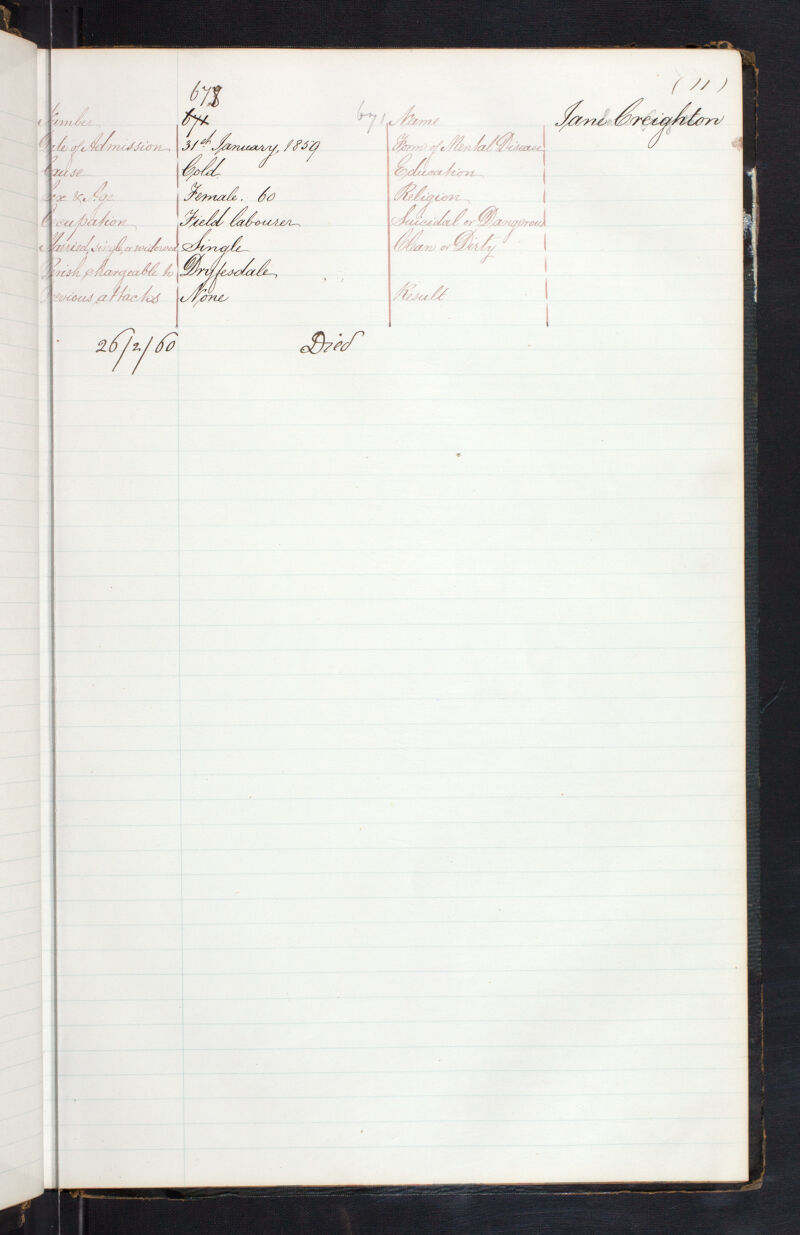 (11)
678
Number 671 671 Name Jane Creighton
Date of Admission 31st January, 1859 Form of Mental Disease
Cause Cold Education
Sex & Age Female. 60 Religion
Occupation Field labourer Suicidal or Dangerous
Married, single, or widowed Single Clean or Dirty
Parish chargeable to Dryfesdale
Previous attacks None Result
26/2/60 Died